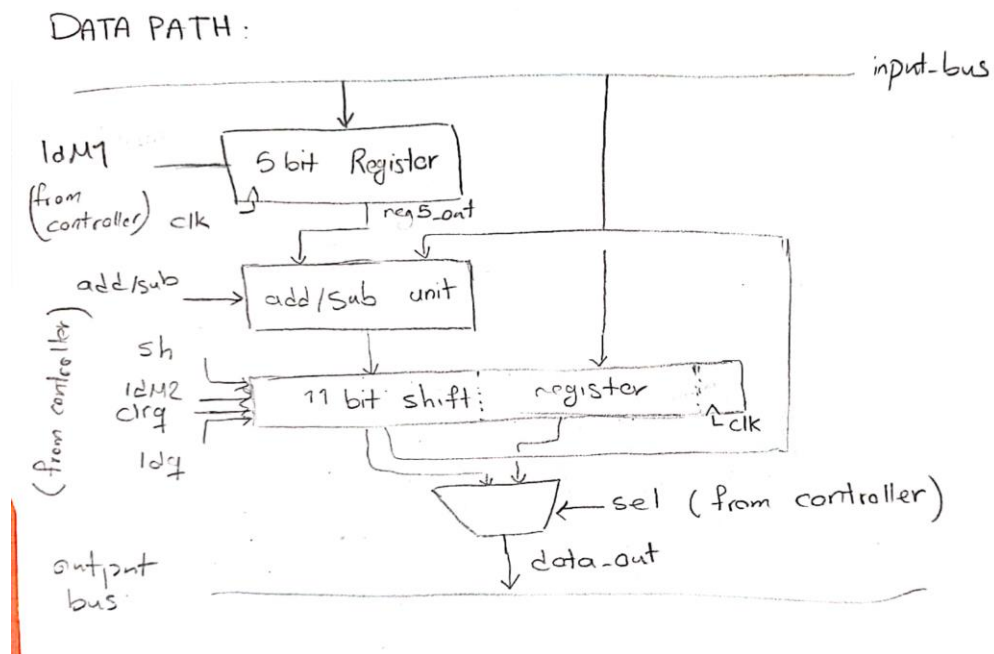 DATA PATH:
input-bus
ldM1
5 bit Register
(from controller)
clk
reg5_out
add/sub
add/sub unit
(from controller)
sh
ldM2
clrq
ldq
11 bit shift register
clk
sel (from controller)
data_out
output
bus